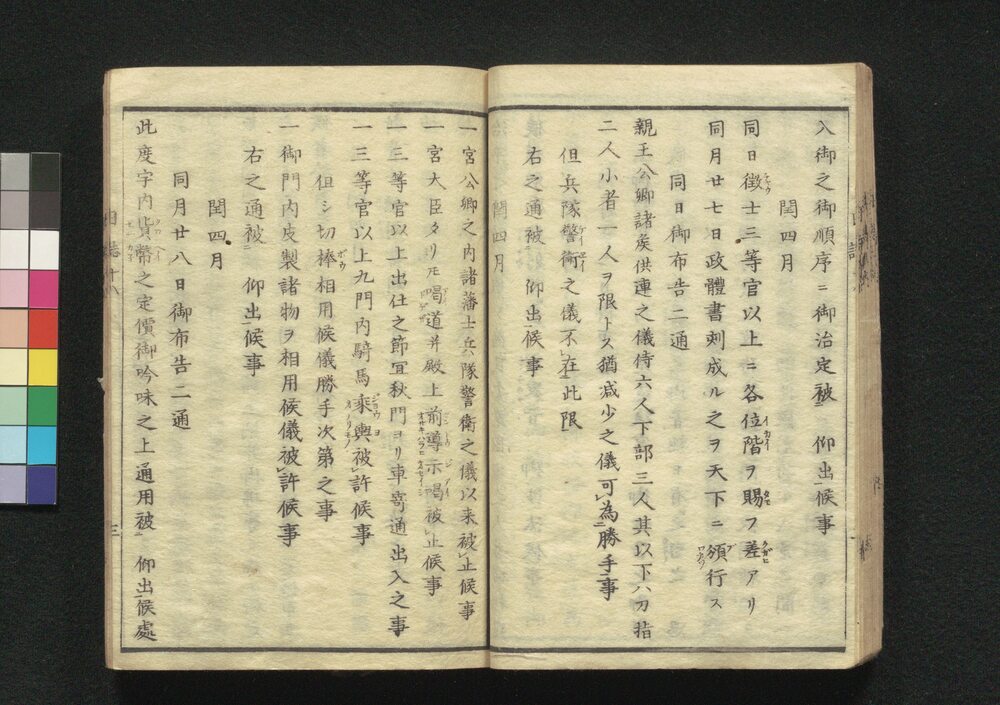 入御之御順序ニ御治定被 仰出候事
閏四月
同日徴士三等官以上ニ各位階ヲ賜フ差アリ
同月廿七日政體書刻成ル之ヲ天下ニ頒行ス
同日御布告二通
親王公卿諸矦供連之儀侍六人下部三人其以下六刃指
二人小者一人ヲ限トス猶减少之儀可為勝手事
但兵隊警衛之儀不在此限
右之通被 仰出候事
閏四月
一宮公卿之内諸藩士兵隊警衛之儀以来被止候事
一宮大臣タリ𪜈喝道并殿上前導示喝被止候事
一三等官以上出仕之節冝秋門ヨリ車寄通出入之事
一三等官以上九門内騎馬乘輿被許候事
但シ切棒相用候儀勝手次第之事
一御門内皮製諸物ヲ相用候儀被許候事
右之通被 仰出候事
閏四月
同月廿八日御布告二通
此度宇内貨幣之定價御吟味之上通用被 仰出候處
日誌十八
三